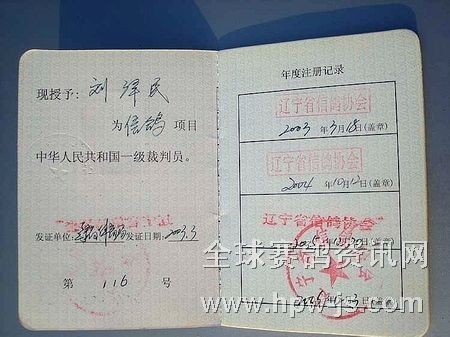 现授予：刘泽民
为信鸽项目
中华人民共和国一级裁判员。
发证单位： 发证日期：2003.3
第 116 号
年度注册记录
辽宁省信鸽协会
2003 年 3 月 18 日(盖章)
辽宁省信鸽协会
2004 年 10 月 12 日(盖章)
辽宁省信鸽协会
日(盖章)
日(盖章)
全球赛鸽资讯网
www.hpwjs.com